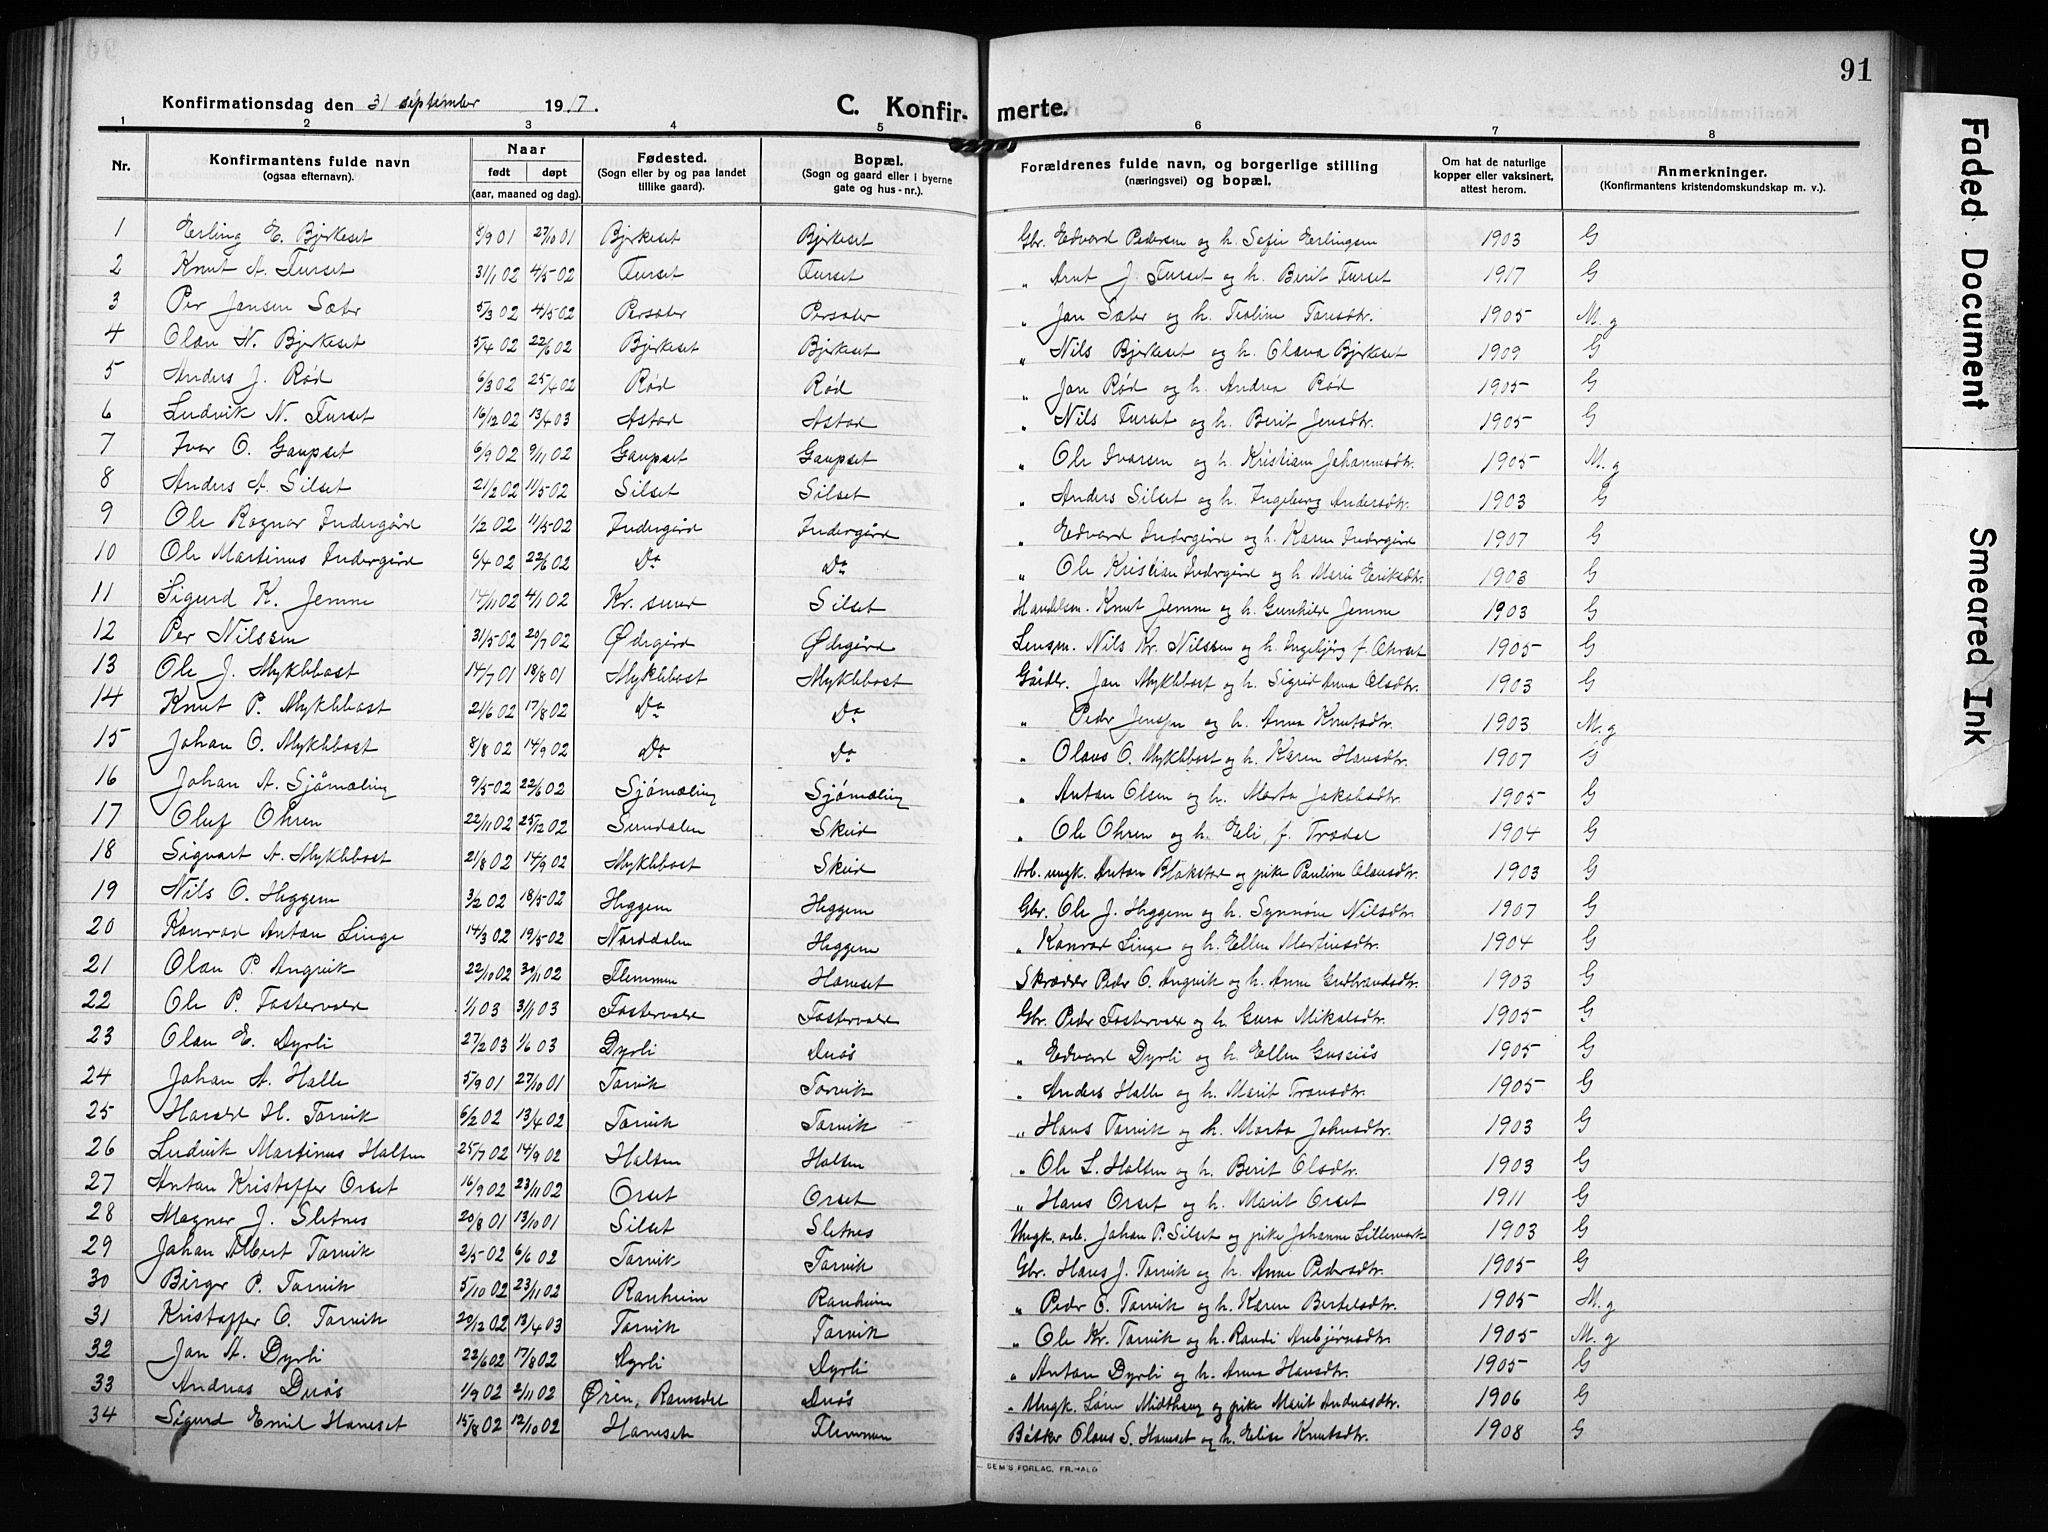 91
Konfirmationsdag den 31 september 1917.
C. Konfirmerte.
1 2 3 4 5 6 7 8
Nr. Konfirmantens fulde navn (ogsaa efternavn). Naar født døpt (aar, maaned og dag). Fødested. (Sogn eller by og paa landet tillike gaard). Bopæl. (Sogn og gaard eller i byerne gate og hus-nr.). Forældrenes fulde navn, og borgerlige stilling (næringsvei) og bopæl. Om hat de naturlige kopper eller vaksinert, attest herom. Anmerkninger. (Konfirmantens kristendomskundskap m. v.).
1 Erling E. Bjerkeset 8/9 01 27/10 01 Bjerkeset Bjerkeset Gbr. Edvard Pedersen og h. Sofie Erlingsen 1903 G
2 Knut A. Turset 31/1 02 4/5 02 Turset Turset " Arnt J. Turset og h. Berit Turset 1917 G
3 Per Jansen Sæter 5/3 02 4/5 02 Persæter Persæter " Jan Sæter og h. 1905 M.g
4 Olav N. Bjerkeset 5/4 02 22/6 02 Bjerkeset Bjerkeset " Nils Bjerkeset og h. Olava Bjerkeset 1909 G
5 Anders J. Rød 6/3 02 25/4 02 Rød Rød " Jan Rød og h. Andrea Rød 1905 G
6 Ludvik N. Turset 16/12 02 13/4 03 Astad Astad " Nils Turset og h. Berit Jensdtr. 1905 G
7 Ivar O. Gaupset 6/9 02 9/11 02 Gaupset Gaupset " Ole Ivarsen og h. Kristiane Johannesdtr. 1905 M.g
8 Anders A. Silset 21/2 02 11/5 02 Silset Silset " Anders Silset og h. Ingeborg Andersdtr. 1903 G
9 Ole Ragnar Indergård 1/2 02 11/5 02 Indergård Indergård " Edvard Indergård og h. Karen Indergård 1907 G
10 Ole Martinus Indergård 6/4 02 22/6 02 Do Do " Ole Kristian Indergård og h. Marie Eriksdtr. 1903 G
11 Sigurd K. Jemne 14/11 02 4/1 02 Kr. sund Silset Handelsm. Knut Jemne og h. Gunhild Jemne 1903 G
12 Per Nilssen 31/5 02 20/7 02 Ødegård Ødegård Lensm. Nils Kr. Nilssen og h. Ingebjørg f. 1905 G
13 Ole J. Myklebost 14/7 01 18/8 01 Myklebost Myklebost Gårdbr. Jan Myklebost og h. Sigrid Anna Olsdtr. 1903 G
14 Knut P. Myklebost 21/6 02 17/8 02 Do Do " Peder Jensen og h. Anna Knutsdtr. 1903 M.g
15 Johan O. Myklebost 8/8 02 14/9 02 Do Do " Olaus O. Myklebost og h. Karen Hansdtr. 1907 G
16 Johan A. Sjømæling 9/5 02 22/6 02 Sjømæling Sjømæling " Antan Olsen og h. Marta Jakobsdtr. 1905 G
17 Oluf Ohren 22/11 02 25/12 02 Sundalen Skeid " Ole Ohren og h. Eli, f. Trædal 1904 G
18 Sigvart A. Myklebost 21/8 02 14/9 02 Myklebost Skeid Arb. ungk. Antan Blakstad og pike Pauline Olausdtr. 1903 G
19 Nils O. Heggem 3/2 02 18/5 02 Heggem Heggem Gbr. Ole J. Heggem og h. Synnøve Nilsdtr. 1907 G
20 Konrad Antan Linge 14/3 02 19/5 02 Norddalen Heggem " Konrad Linge og h. Ellen Martinsdtr. 1904 G
21 Olav P. Angvik 22/10 02 30/11 02 Flemmen Hamset Skrædder Peder O. Angvik og h. Anne Gudbrandsdtr. 1903 G
22 Ole P. Fostervold 1/1 03 3/1 03 Fostervold Fostervold Gbr. Peder Fostervold og h. Guro Mikalsdtr. 1905 G
23 Olav E. Dyrli 27/2 03 1/6 03 Dyrli Duås " Edvard Dyrli og h. Ellen Gussiås 1905 G
24 Johan A. Halle 5/9 01 27/10 01 Torvik Torvik " Anders Halle og h. Marit 1905 G
25 Harald H. Torvik 6/2 02 13/4 02 Torvik Torvik " Hans Torvik og h. Marta Johnsdtr. 1903 G
26 Ludvik Martinus Halsen 25/7 02 14/9 02 Halsen Halsen " Ole L. Halsen og h. Berit Olsdtr. 1903 G
27 Antan Kristoffer Orset 16/9 02 23/11 02 Orset Orset " Hans Orset og h. Marit Orset 1911 G
28 Magnar J. Sletnes 20/8 01 13/10 01 Silset Sletnes Ungk. arb. Johan P. Silset og pike Johanne Lillemork 1903 G
29 Johan Albert Torvik 2/5 02 6/6 02 Torvik Torvik Gbr. Hans J. Torvik og h. Anne Pedersdtr. 1905 G
30 Birger P. Torvik 5/10 02 23/11 02 Ranheim Ranheim " Peder O. Torvik og h. Karen Bertelsdtr. 1905 M.g
31 Kristoffer O. Torvik 20/12 02 13/4 03 Torvik Torvik " Ole Kr. Torvik og h. Randi Anbjørnsdtr. 1905 M.g
32 Jan A. Dyrli 22/6 02 17/8 02 Dyrli Dyrli " Antan Dyrli og h. Anna Hansdtr. 1905 G
33 Andreas Duås 1/9 02 2/11 02 Øren, Romsdal Duås " Ungk. Midthaug og pike Marit Andreasdtr. 1906 G
34 Sigurd Emil Hamset 15/8 02 12/10 02 Hamset Flemmen Bøkker Olaus S. Hamset og h. Elise Knutsdtr. 1908 G
SEM'S FORLAG, FR.HALD
Faded Document
Smeared Ink